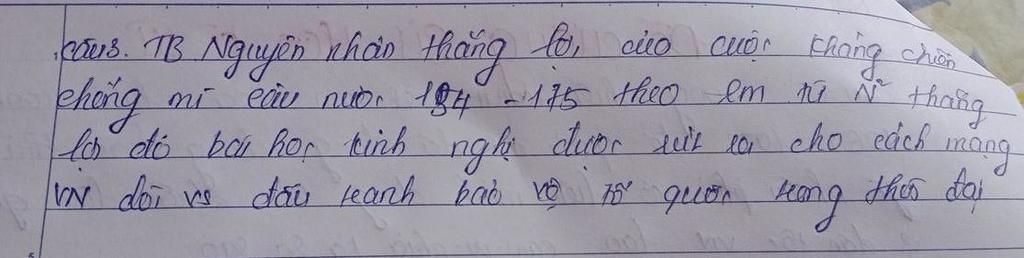 câu3. TB Nguyên nhân thắng lợi của cuộc kháng chiến
chống mĩ cứu nước 1954 - 175 theo em từ N² thắng
lợi đó bài học kinh nghị được rút ra cho cách mạng
VN đối vs đấu tranh bảo vệ tổ quốc trong thời đại